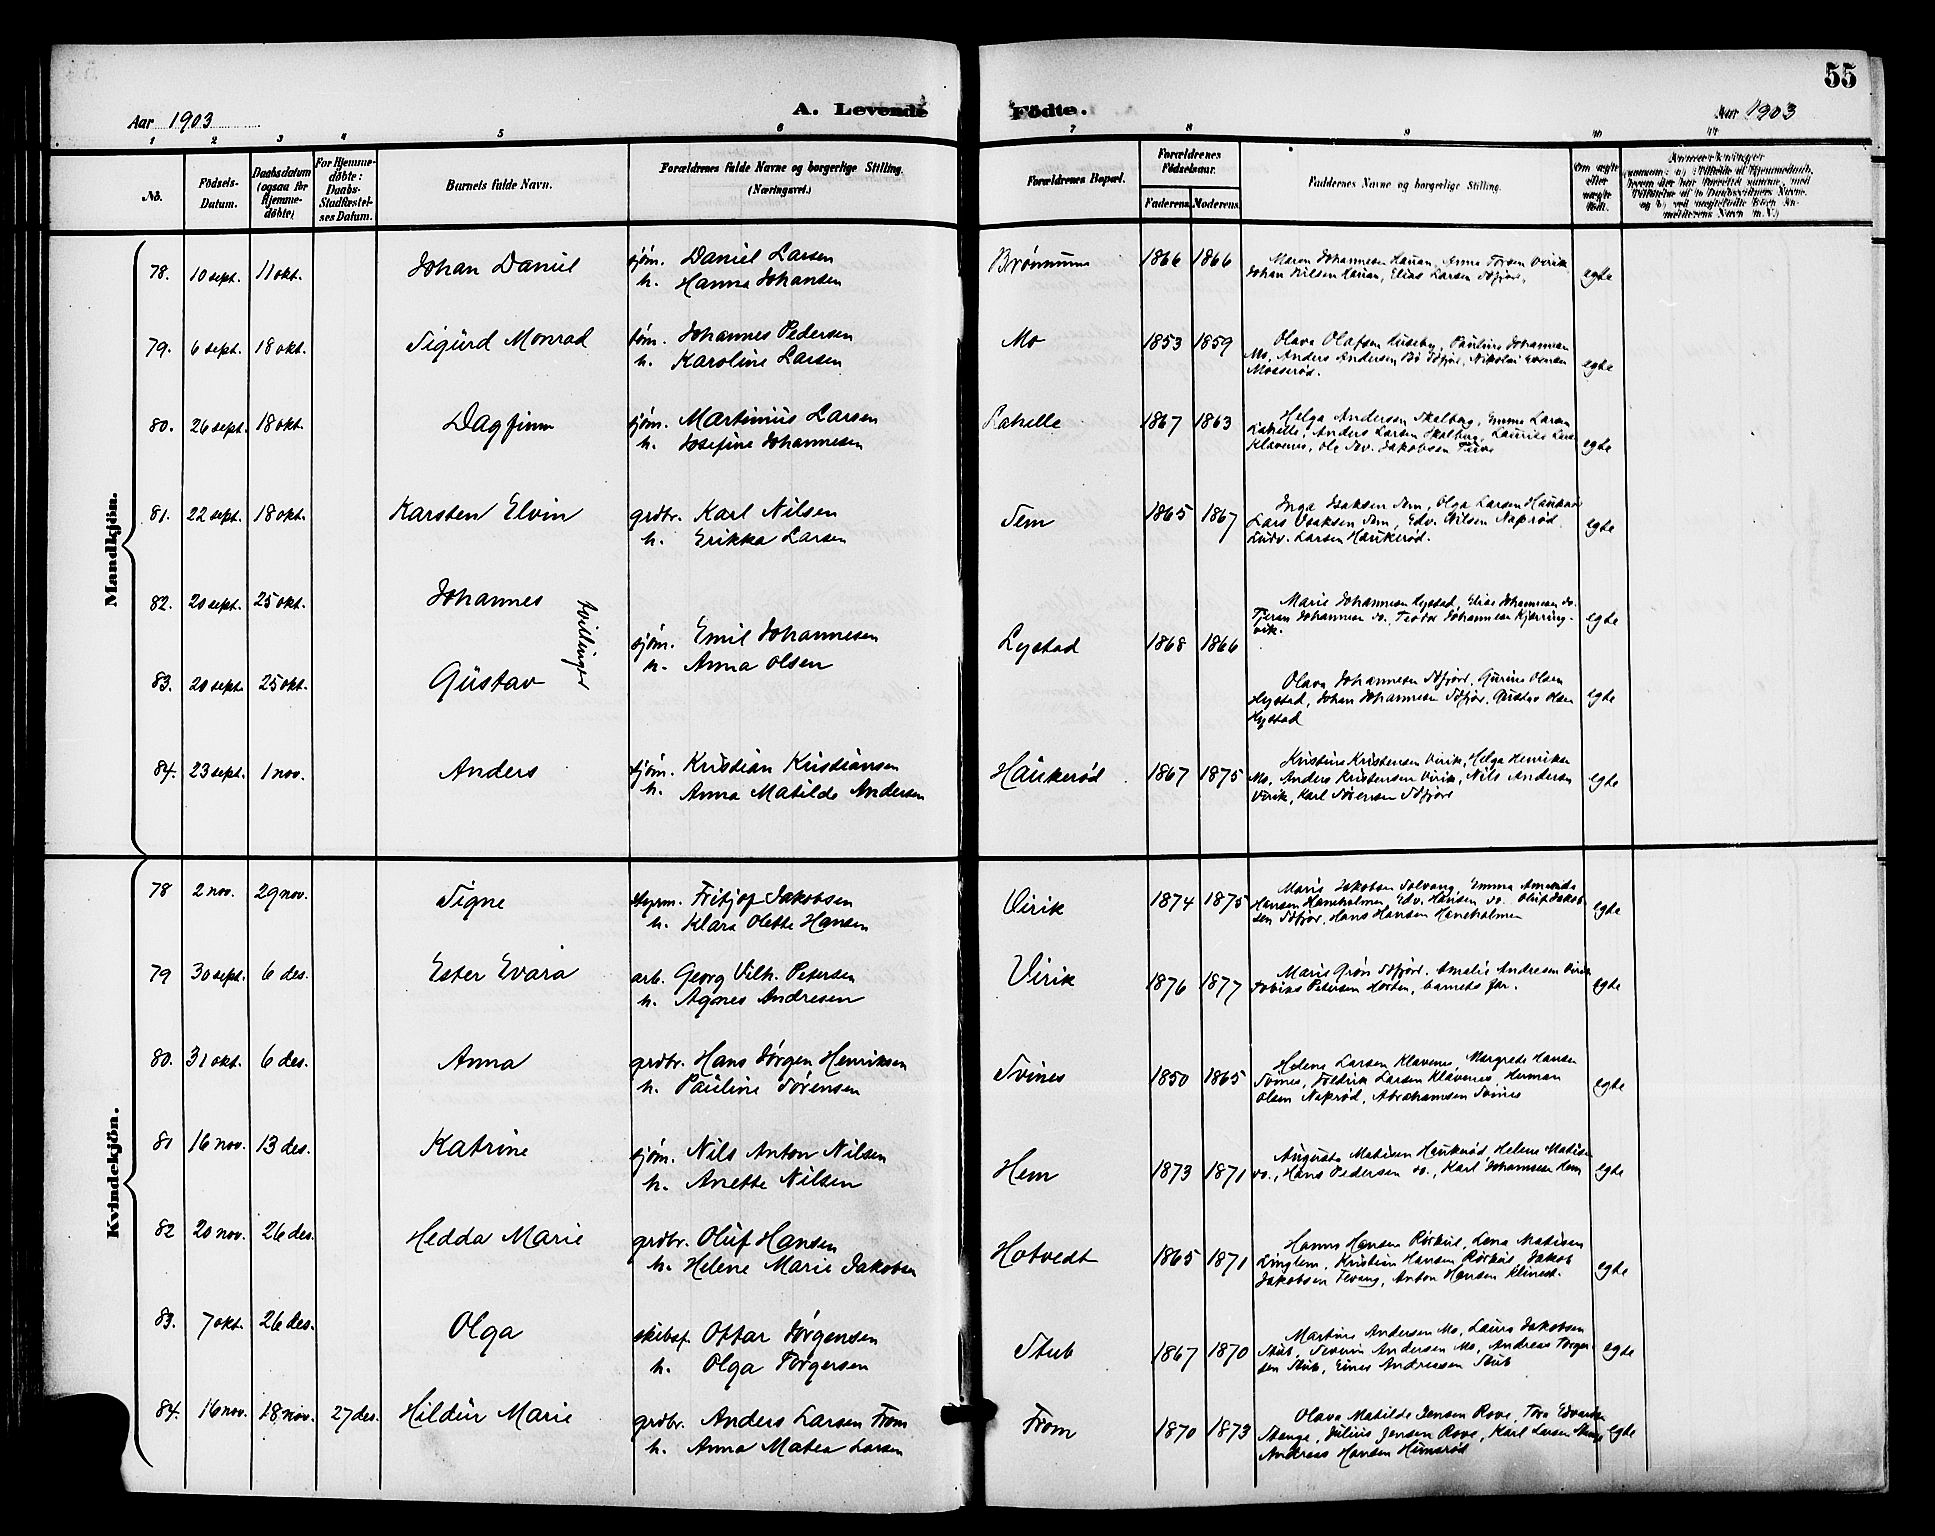 55
Aar 1903
A. Levende Födte.
Aar 1903
1 2 3 4 5 6 7 8 9 10 11
No.
Födsels-Datum.
Daabsdatum (ogsaa for Hjemmedöbte)
For Hjemmedöbte: Daabs-Stadfæstelses Datum.
Barnets fulde Navn.
Forældrenes fulde Navne og borgerlige Stilling.
(Næringsvei.)
Forældrenes Bopæl.
Forældrenes Födselsaar.
Faderens. Moderens.
Faddernes Navne og borgerlige Stilling.
Om ægte eller uægte født.
Mandkjön.
78. 10 sept. 11 okt. Johan Daniel sjøm. Daniel Larsen 1866 1866 Maren Johannesen Hauan, Anna Torsen Virik
h. Hanna Johansen Johan Nilsen Hauan, Elias Larsen Sdfjor. egte
79. 6 sept. 18 okt. Sigurd Monrad tøm. Johannes Pedersen Mo 1853 1859 Olava Olafsen Huseby, Pauline Johannesen
h. Karoline Larsen Mo, Anders Andersen Bø Sdfjor, Nikolai Evensen egte
Mosserød.
80. 26 sept. 18 okt. Dagfinn sjøm. Martinius Larsen Lahelle 1867 1863 Helga Andersen Skalberg, Emma Larsen
h. Josefine Johannesen Lahelle, Anders Larsen Skalberg, Laurits Larsen egte
Klavenes, Ole Jakobsen
81. 22 sept. 18 okt. Karsten Elvin grdbr. Karl Nilsen Sem 1865 1867 Inga Isaksen Sem, Olga Larsen Haukerød
h. Erikka Larsen Lars Isaksen Sem, Edv. Nilsen Naprød, egte
Ludv. Larsen Haukerød.
82. 20 sept. 25 okt. Johannes tvillinger Marie Johannesen Lystad, Elise Johannesen do.
Johannesen do. Teodor Johannesen Kjærringvik. egte
sjøm. Emil Johannesen Lystad 1868 1866
h. Anna Olsen
83. 20 sept. 25 okt. Gustav Olava Johannesen Sdfjor, Gurine Olsen
Lystad, Johan Johannesen Sdfjor, Gustav Olsen egte
Lystad
84. 23 sept. 1 nov. Anders sjøm. Kristian Kristiansen Haukerød 1867 1875 Kristine Kristensen Virik, Helga Henriksen
h. Anna Matilde Andersen Mo, Anders Kristensen Virik, Nils Andersen egte
Virik, Karl Sørensen Sdfjor
Kvindekjön.
78 2 nov. 29 nov. Signe styrm. Fritjof Jakobsen Virik 1874 1875 Maris Jakobsen Solvang, Emma Amanda
h. Klara Olette Hansen Hansen Haneholmen, Edv. Hansen do. Oluf Jakobsen egte
Sdfjor, Hans Hansen Haneholmen
79 30 sept. 6 des. Ester Evara arb. Georg Vilh. Petersen Virik 1876 1877 Marie Grøn Sdfjor. Amalie Andresen Virik
h. Agnes Andresen Tobias Petersen Horten, barnets far. egte
80. 31 okt. 6 des. Anna grdbr. Hans Jørgen Henriksen Svines 1850 1865 Helene Larsen Klavenes, Margrete Hansen
h. Pauline Sørensen Svines, Fredrik Larsen Klavenes, Herman
Olsen Naprød, Abrahamsen Svines egte
81 16 nov. 13 des. Katrine sjøm. Nils Anton Nilsen Hem 1873 1871 Augusta Matisen Haukerød Helene Matisen
h. Anette Nilsen do., Hans Pedersen do., Karl Johannesen Hem egte
82 20 nov. 26 des. Hedda Marie grdbr. Oluf Hansen Hotvedt 1865 1871 Hanna Hansen Rørkul, Lena Matisen
h. Helene Marie Jakobsen Linglem, Kristian Hansen Rørkul, Jakob
Jakobsen Tevang, Anton Hansen Klinest. egte
83. 7 okt. 26 des. Olga skibsf. Ottar Jørgensen Stub 1867 1870 Martine Andersen Mo, Laura Jakobsen
h. Olga Torgersen Stub, Severin Andersen Mo, Andreas Torgersen egte
Stub, Einar Andreassen Stub
84. 16 nov. 18 nov. 27 des. Hildur Marie grdbr. Anders Larsen From From 1870 1873 Olava Matilde Jensen Rove, Tora Edvardsen
h. Anna Matea Larsen Stange, Julius Jensen Rove, Karl Larsen egte
Andreas Hansen Hunsrød